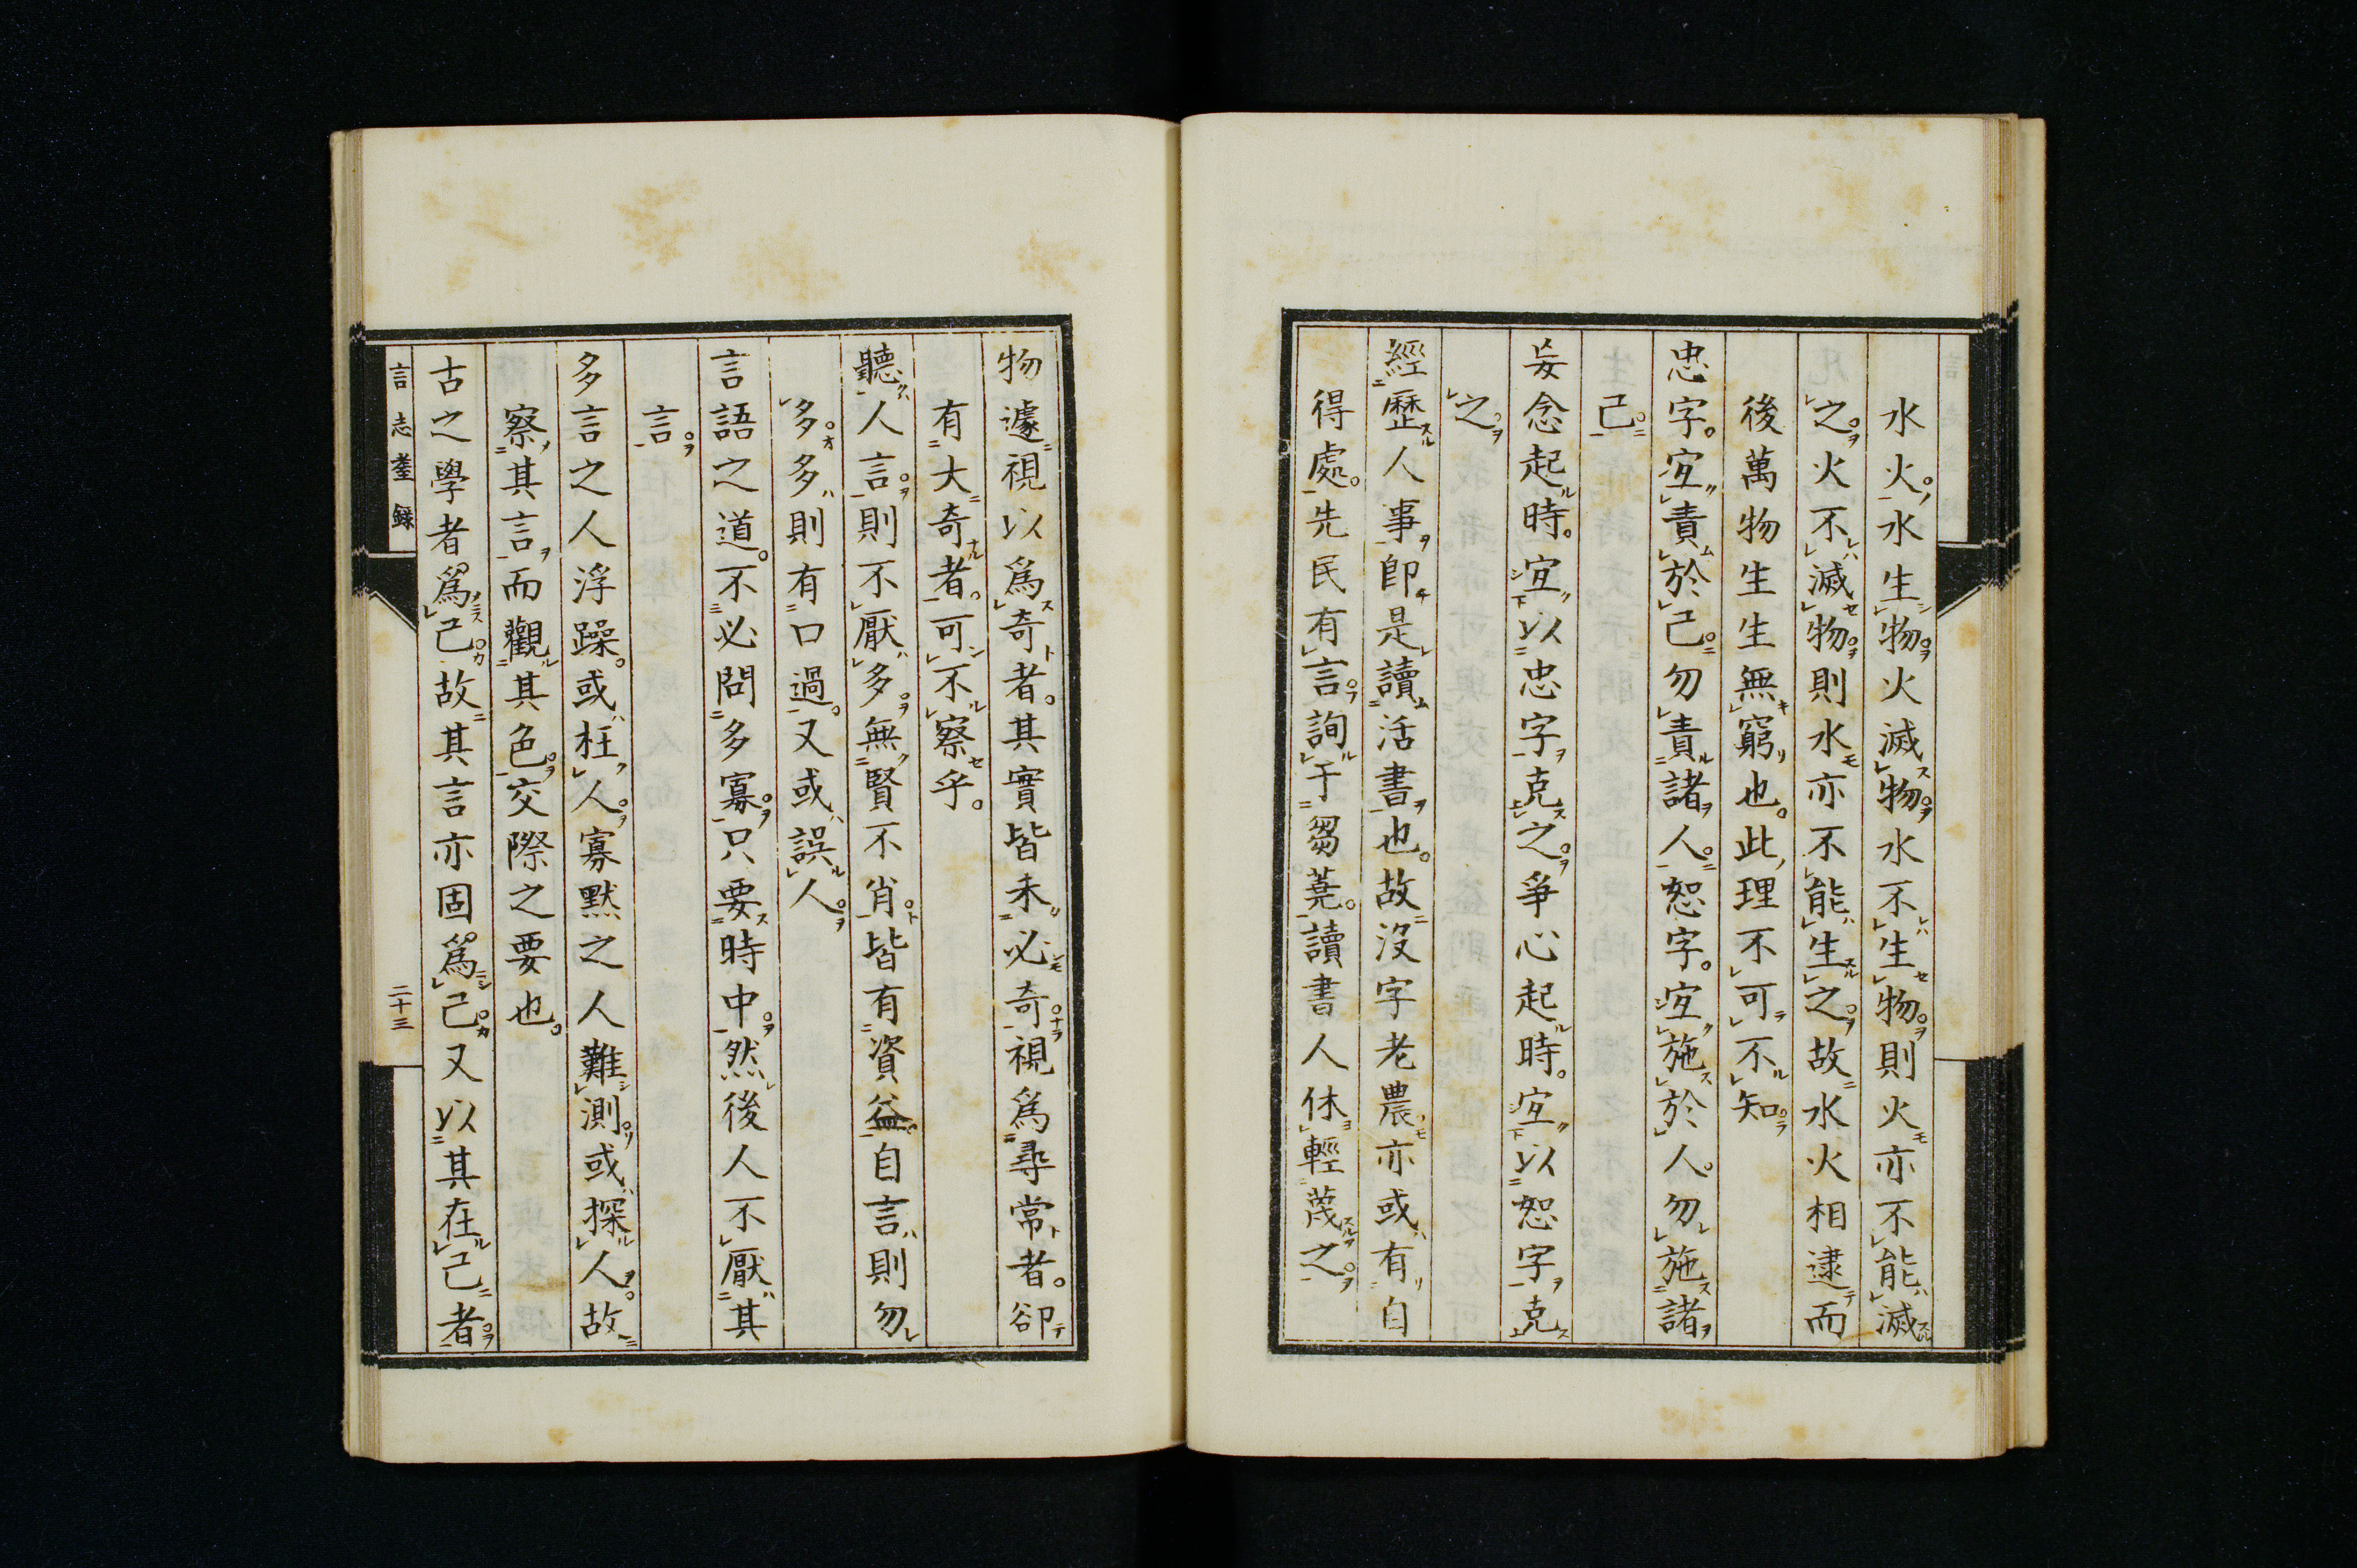 水火。水生物。火滅物。水不生物。則火亦不能滅
之。火不滅物。則水亦不能生之。故水火相逮而
後萬物生生無窮也。此理不可不知
忠字。宜責於己。勿責諸人。恕字。宜施於人。勿施諸
己。
妄念起時。宜以忠字克之。爭心起時。宜以恕字克
之。
經歷人事。卽是讀活書也。故沒字老農亦或有自
得處。先民有言。詢于芻蕘。讀書人休輕蔑之。
物遽視以爲奇者。其實皆未必奇。視爲尋常者。卻
有大奇者。可不察乎。
聽人言。則不厭多。無賢不肖。皆有資益。自言則勿
多。多則有口過。又或誤人。
言語之道。不必問多寡。只要時中。然後人不厭其
言。
多言之人浮躁。或枉人。寡默之人難測。或探人。故
察其言。而觀其色。交際之要也。
古之學者爲己。故其言亦固爲己。又以其在己者。
言志耋錄
二十三